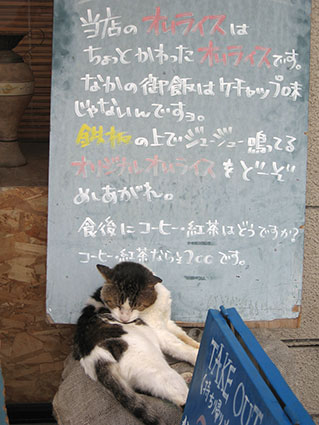 当店のオムライスは
ちょっとかわったオムライスです。
なかの御飯はケチャップ味
じゃないんですョ。
鉄板の上でジュージュー鳴ってる
オリジナルオムライスをどーぞ
めしあがれ。
食後にコーヒー・紅茶はどうですか?
コーヒー・紅茶なら¥200です。
TAKE OUT